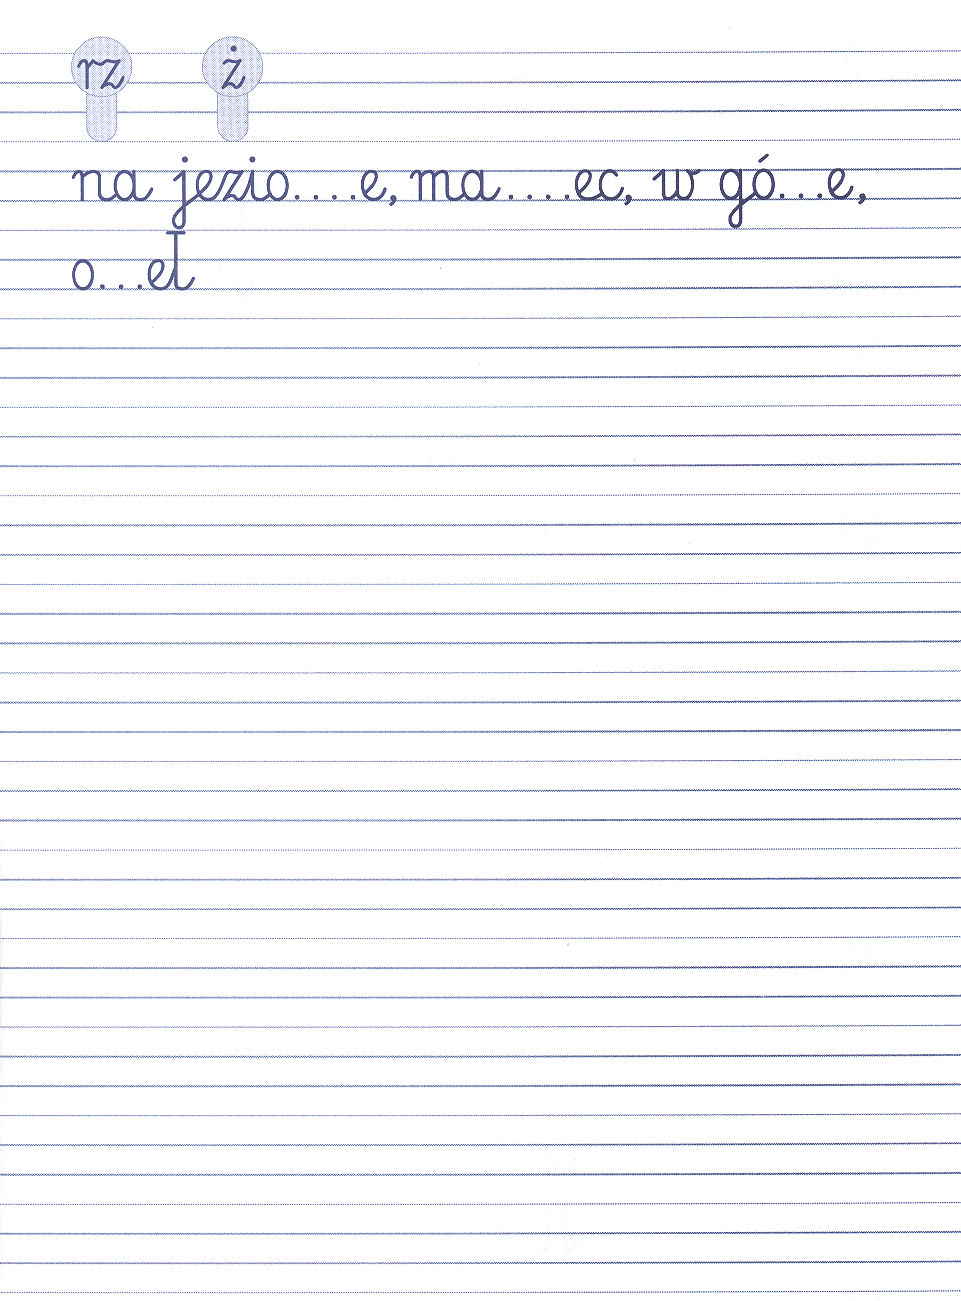 rz ż
na jezio....e, ma....ec, w gó...e,
o...eł